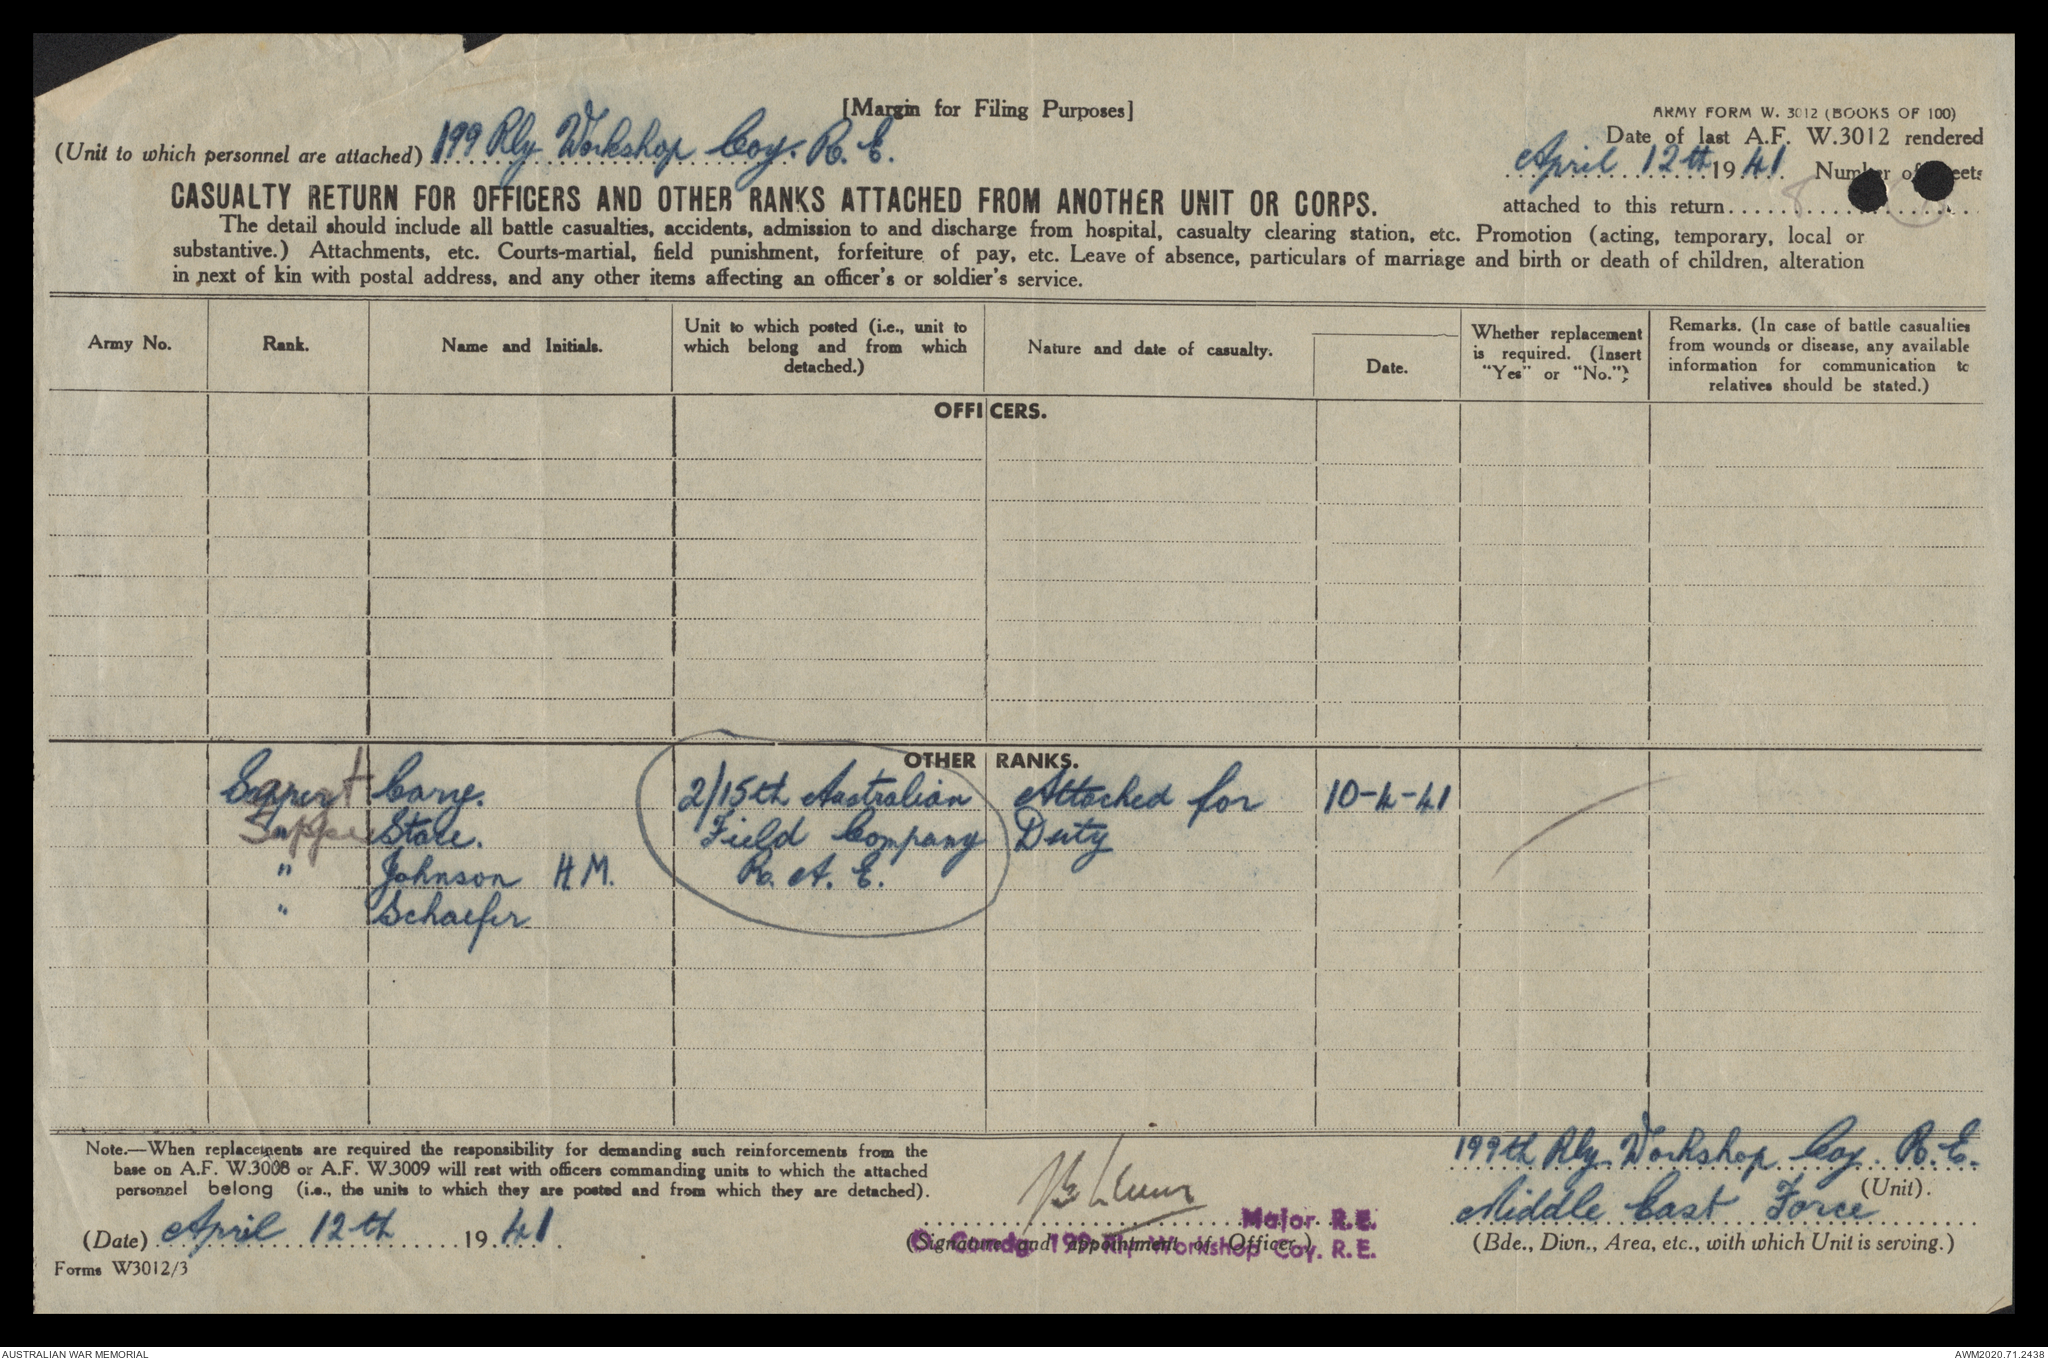 [Margin for Filing Purposes]
ARMY FORM W. 3012 (BOOKS OF 100)
Date of last A.F. W.3012 rendered
(Unit to which personnel are attached) 199 Rly Workshop Coy. R. E.
April 12th 1941. Number of
attached to this return
CASUALTY RETURN FOR OFFICERS AND OTHER RANKS ATTACHED FROM ANOTHER UNIT OR CORPS.
The detail should include all battle casualties, accidents, admission to and discharge from hospital, casualty clearing station, etc. Promotion (acting, temporary, local or
substantive.) Attachments, etc. Courts-martial, field punishment, forfeiture of pay, etc. Leave of absence, particulars of marriage and birth or death of children, alteration
in next of kin with postal address, and any other items affecting an officer's or soldier's service.
Army No.
Rank.
Name and Initials.
Unit to which posted (i.e., unit to
which belong and from which
detached.)
Nature and date of casualty.
Date.
Whether replacement
is required. (Insert
"Yes" or "No.")
Remarks. (In case of battle casualties
from wounds or disease, any available
information for communication to
relatives should be stated.)
OFFICERS.
OTHER RANKS.
2/15th Australian Attached for 10-4-41
Sapper Field Company Duty
" Johnson H M. R. A. E.
" Schaefer
Note.—When replacements are required the responsibility for demanding such reinforcements from the
base on A.F. W.3008 or A.F. W.3009 will rest with officers commanding units to which the attached
personnel belong (i.e., the units to which they are posted and from which they are detached).
(Date) April 12th 1941.
Forms W3012/3
Major R.E.
(Signature and appointment of Officer.)
Comdg. 199 Rly Workshop Coy. R.E.
199th Rly. Workshop Coy. R. E.
(Unit).
Middle East Force
(Bde., Divn., Area, etc., with which Unit is serving.)
AUSTRALIAN WAR MEMORIAL
AWM2020.71.2438